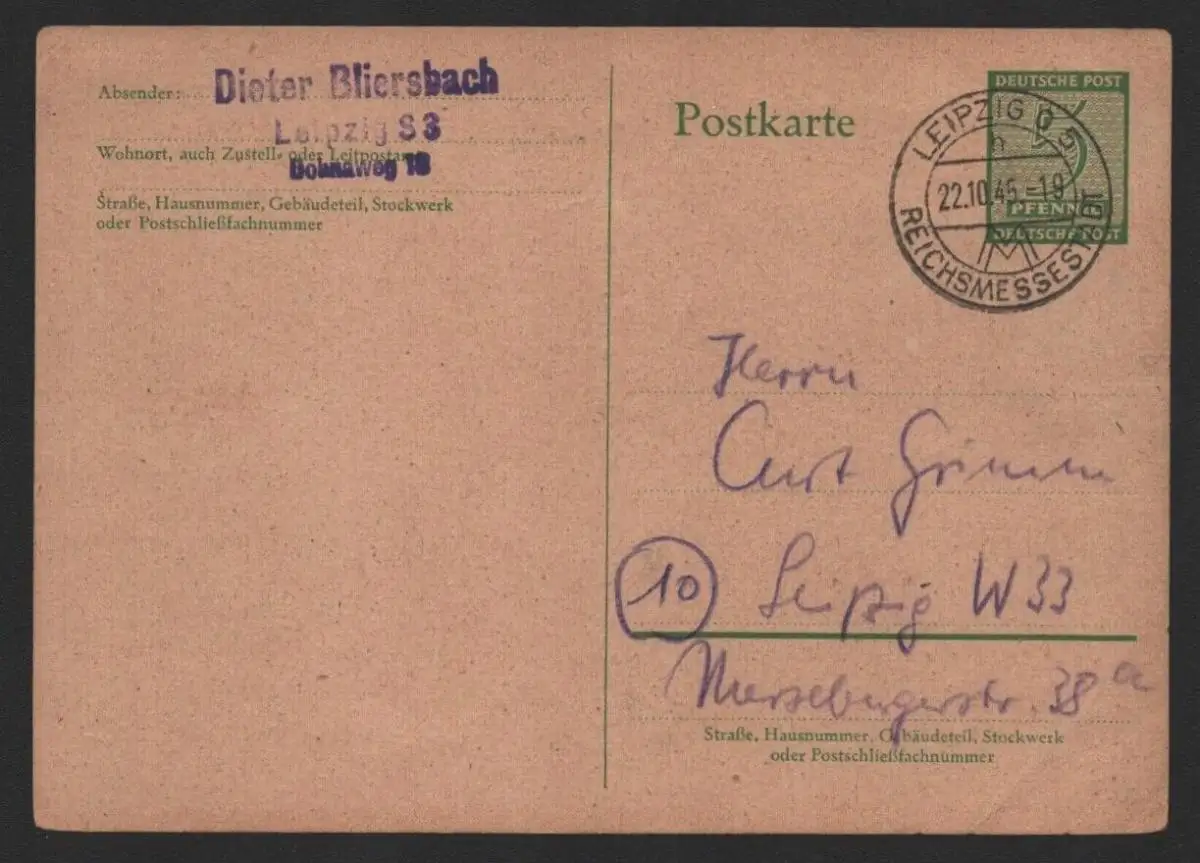 Absender:
Dieter Bliersbach
Leipzig S 3
Wohnort, auch Zustell- oder Leitpostamt
18
Straße, Hausnummer, Gebäudeteil, Stockwerk
oder Postschließfachnummer
Postkarte
DEUTSCHE POST
5
PFENNIG
DEUTSCHE POST
LEIPZIG O 5
h
22.10.45.-19
REICHSMESSESTADT
M
Herrn
Curt Grimm
10 Leipzig W 33
Merseburgerstr. 38 a
Straße, Hausnummer, Gebäudeteil, Stockwerk
oder Postschließfachnummer